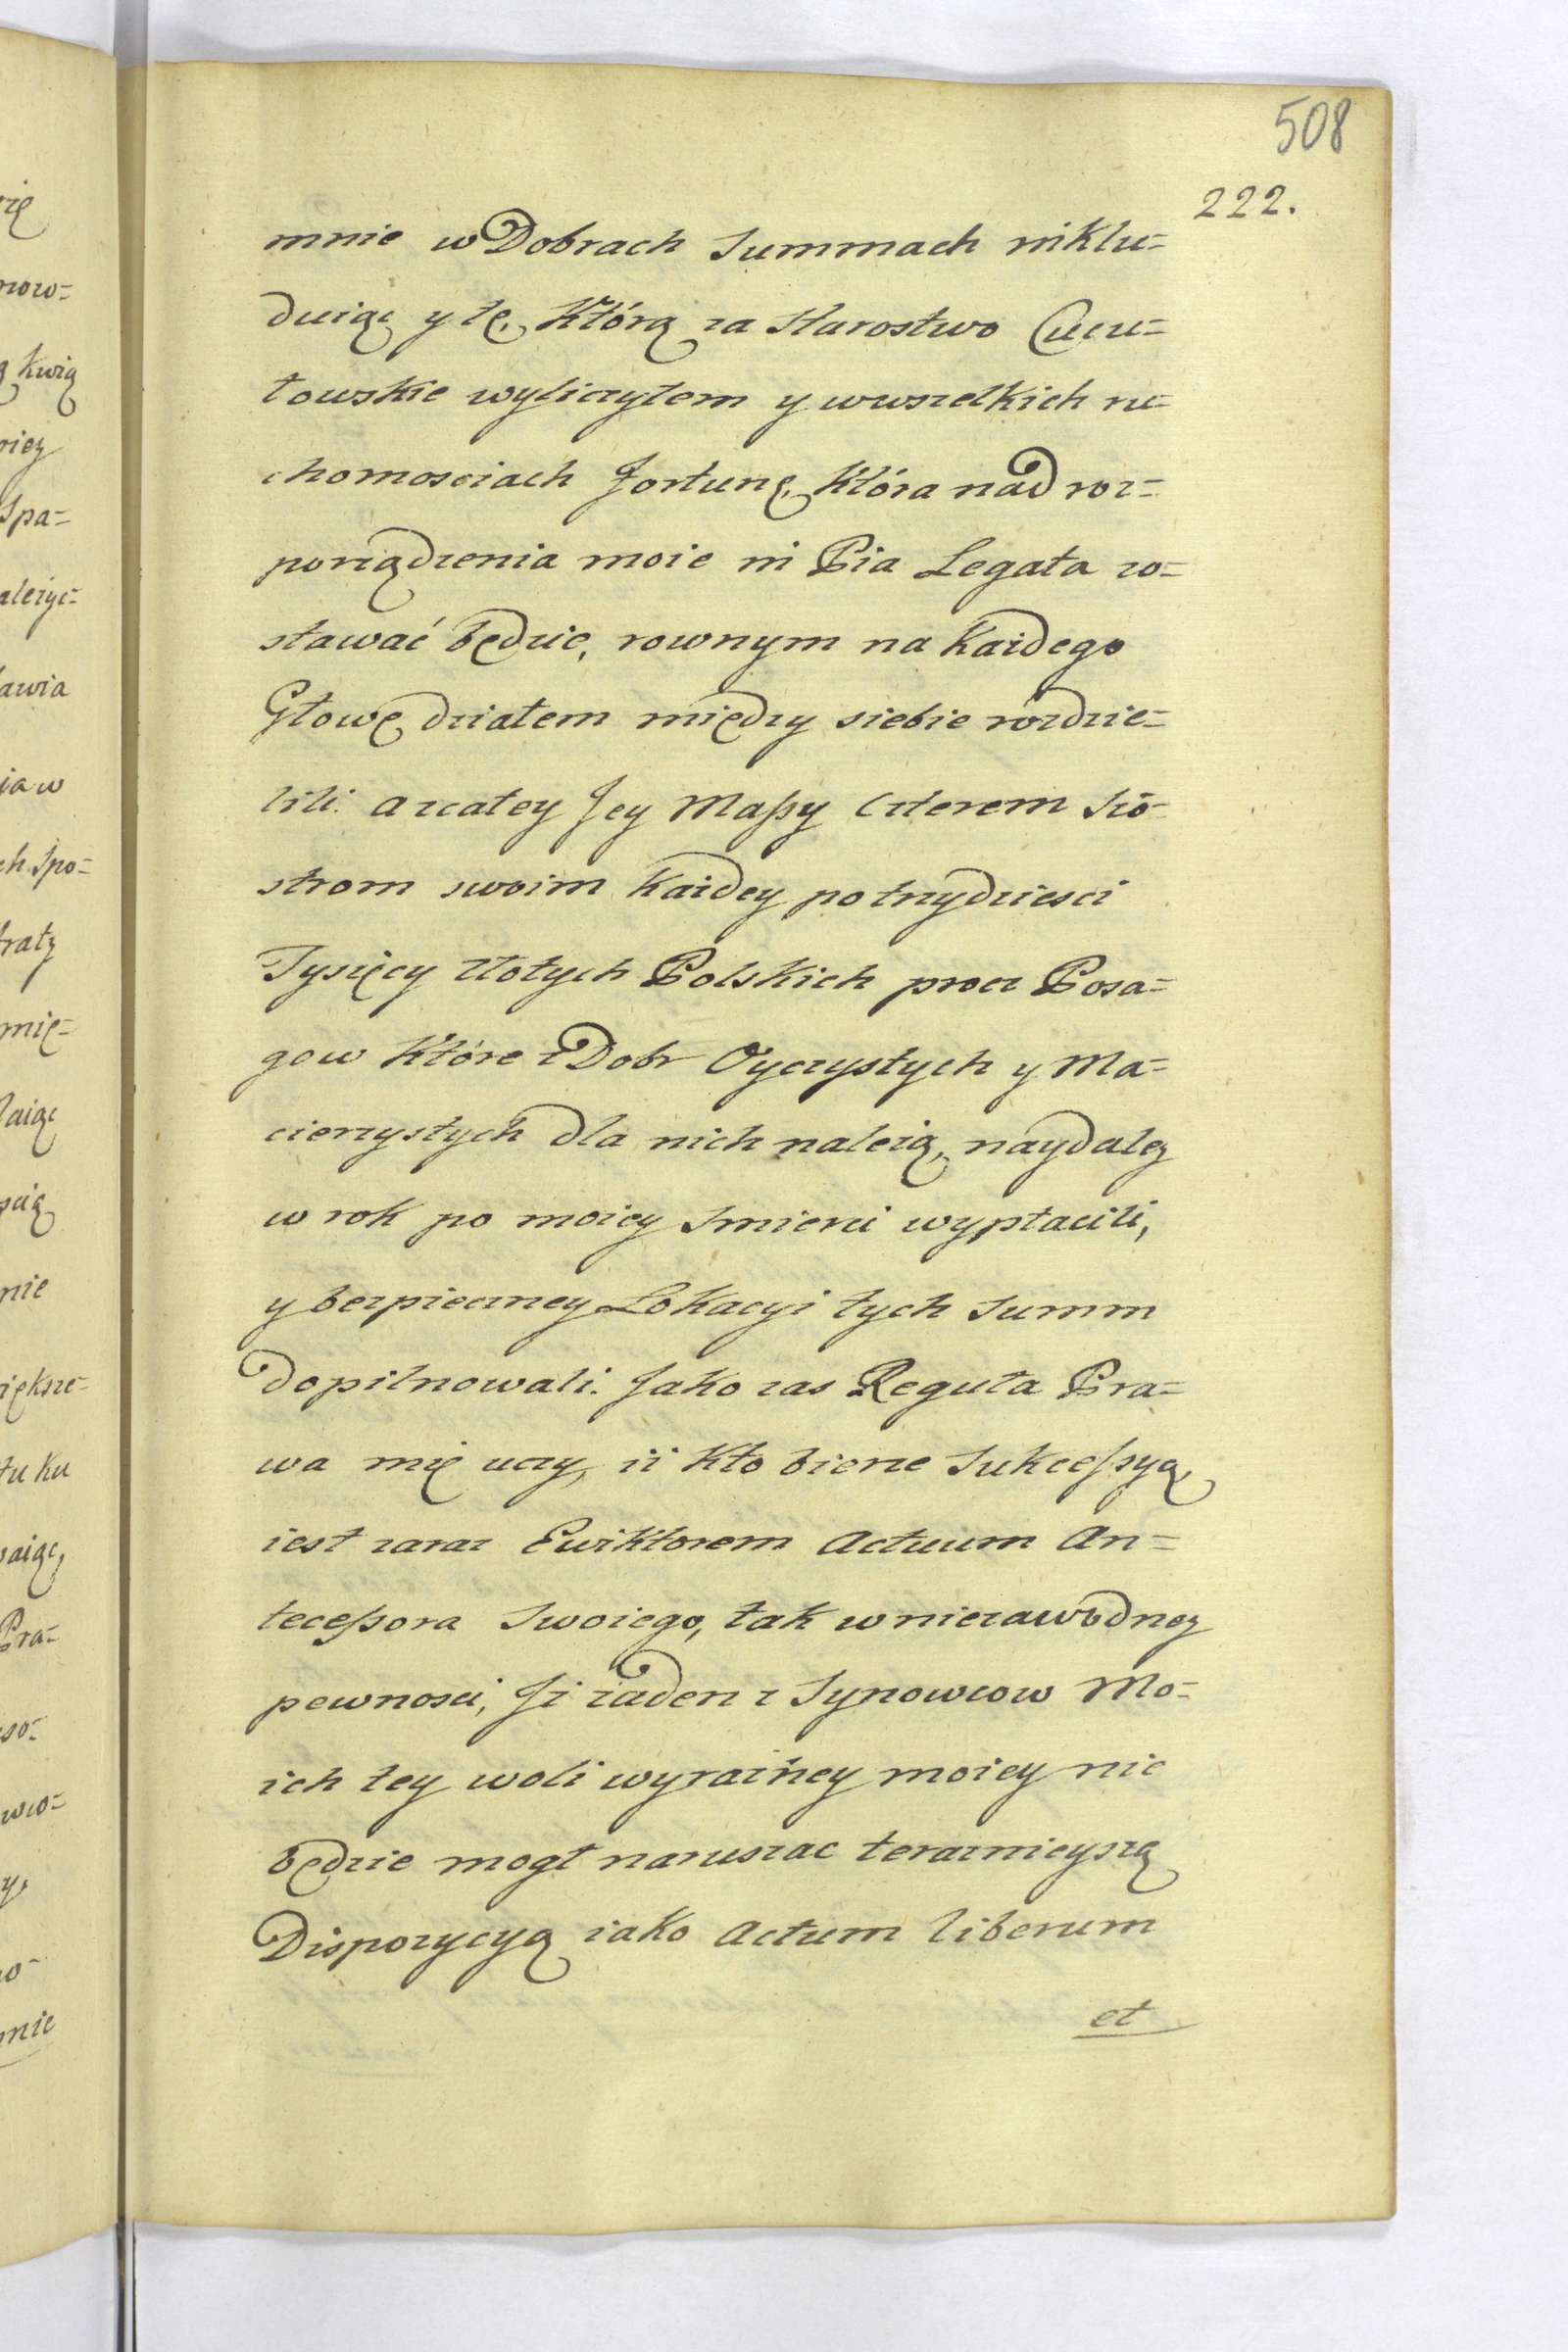 508
222.
mnie w Dobrach Summach niklu=
duiąc y tę, Którą za Starostwo Cucu=
łowskie wyliczyłem y wwszelkich ru=
chomosciach Fortunę, Która nad roz=
porządzenia moie ni Pia Legata zo=
stawać będzie, rownym na Każdego
Głowę działem między siebie rozdzie=
lili. a zcałey Jey Massy Czterem Sio=
strom swoim Każdey po trzydziesci
Tysięcy złotych Polskich procz Posa=
gow Które z Dobr Oyczystych y Ma=
cierzystych dla nich należą, naydaley
w rok po moiey Smierci wypłacili,
y bezpieczney Lokacyi tych Summ
dopilnowali. Jako zas Reguła Pra=
wa mię uczy, iż Kto bierze Sukcessyą,
iest zaraz Ewiktorem Actuum An=
tecessora Swoiego, tak wniezawodney
pewnosci, Iż żaden z Synowcow Mo=
ich tey woli wyraźney moiey nie
będzie mogł naruszac teraznieyszą
Dispozycyą iako Actum liberum
et